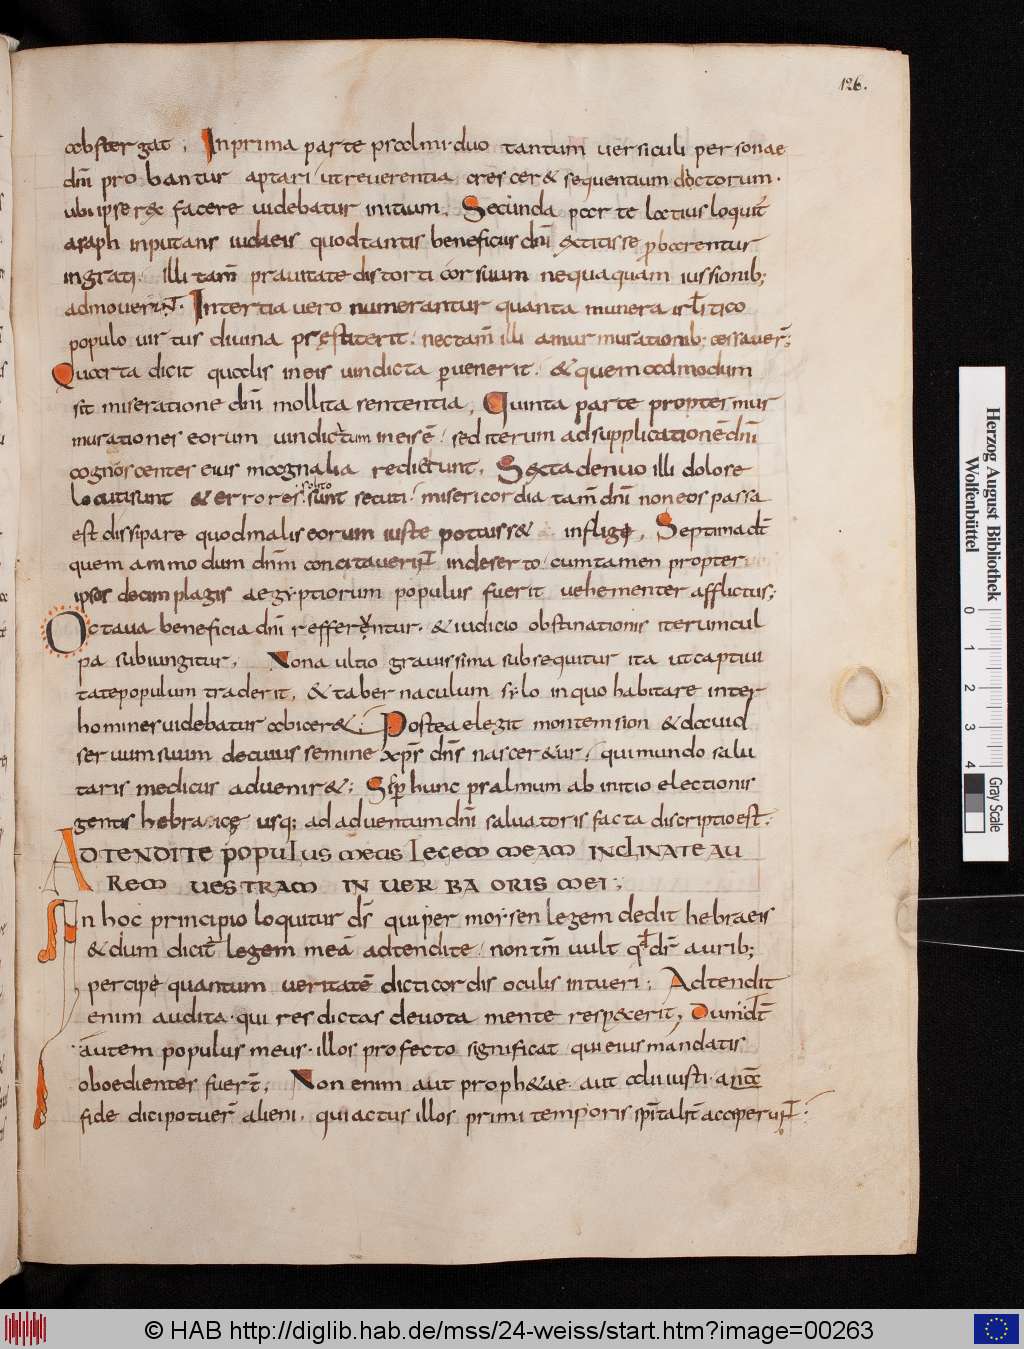 126.
abstergat ; In prima parte psalmi duo tantum versiculi personae
dñi probantur aptari ut reverentia cresceret sequentium doctorum .
ubi ipse rex facere videbatur initium . Secunda parte latius loquitur
asaph inputans iudaeis quod tantis beneficiis dñi extitisse probarentur
ingrati . illi tam̄ pravitate distorti corsuum nequaquam iussionib;
admoverint . In tertia vero numerantur quanta munera isrl̄itico
populo virtus divina praestiterit . nec tam̄ illi a murmurationib; cessaver̄;
Quarta dicit qualis in eis vindicta pervenerit . & quemadmodum
sit miseratione dñi mollita sententia . Quinta parte propter mur
murationes eorum vindictum in eis ē . sed iterum ad supplicationē dñi
cognoscentes eius magnalia redierunt . Sexta denuo illi dolose
locuti sunt & errores solito sunt secuti . misericordia tam̄ dñi non eos passa
est dissipare quod malis eorum iuste potuiss& infligi . Septima dt̄
quemammodum dñm concitaverunt in deserto . cum tamen propter
ipsos decim plagis aegyptiorum populus fuerit vehementer afflictus ;
Octava beneficia dñi refferuntur . & iudicio obstinationis iterum cul
pa subiungitur . Nona ultio gravissima subsequitur ita ut captivi
tate populum traderit . & tabernaculum sylo in quo habitare inter
homines videbatur abicer& ; Postea elegit montem sion & david
servum suum de cuius semine xp̄s dñs nascer&ur . qui mundo salu
taris medicus advenir& ; Sup̄ hunc psalmum ab initio electionis
gentis hebraice usq; ad adventum dñi salvatoris facta discriptio est .
ADTENDITE POPULUS MEUS LEGEM MEAM INCLINATE AU
REM VESTRAM IN VERBA ORIS MEI ;
In hoc principio loquitur dš qui per moysen legem dedit hebraeis
& dum dicit legem meā adtendite . non tm̄ vult audiri aurib;
percipe quantum veritatē dicti cordis oculis intueri ; Adtendit
enim audita . qui res dictas devota mente respexerit . Dum dt̄
autem populus meus . illos profecto significat qui eius mandatis
oboedientes fuer̄t . Non enim aut proph&ae aut alii iusti ancē
fide dici potuer̄ alieni . qui actus illos primi temporis spiritalit̄ acceperunt ;
Herzog August Bibliothek
Wolfenbüttel
0 1 2 3 4
Gray Scale
© HAB http://diglib.hab.de/mss/24-weiss/start.htm?image=00263